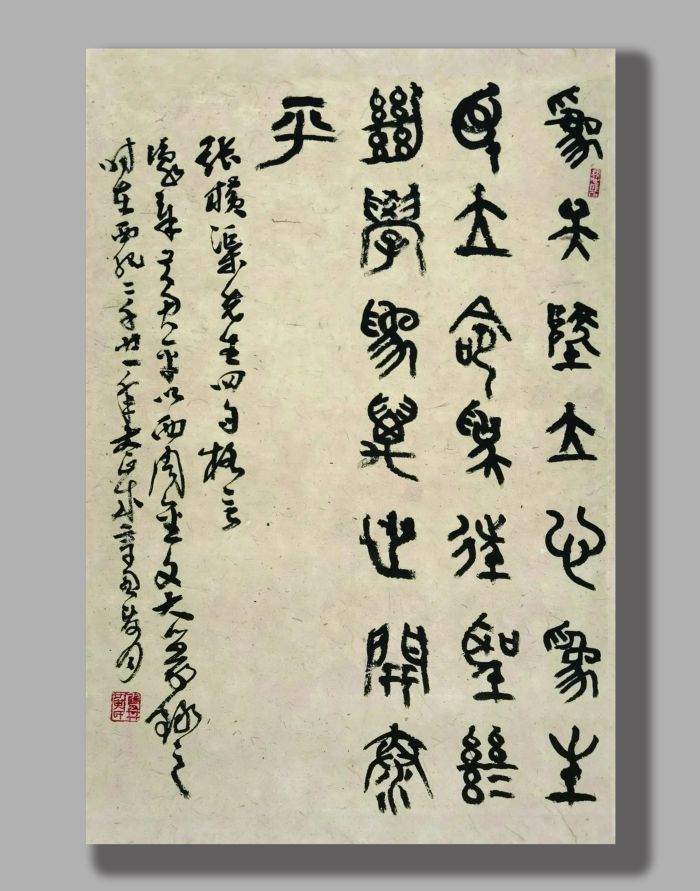 為天地立心為生
民立命為往聖繼
絕學為萬世開泰
平
張橫渠先生四句格言
以西周金文大篆錄之
時在西紀二千廿一年